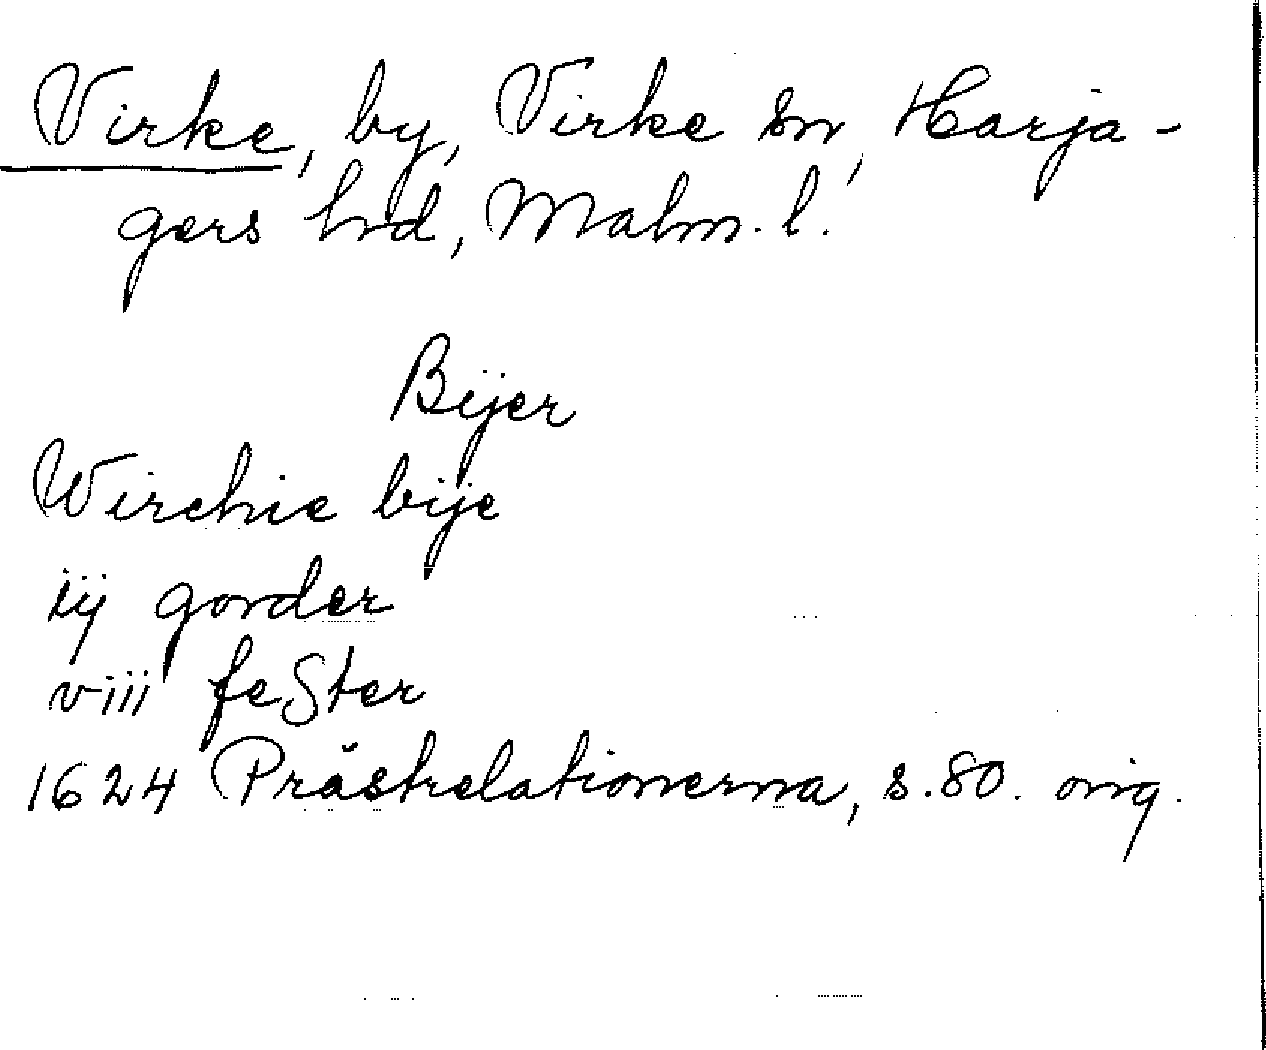 Virke, by, Virke sn, Harja-
gers hrd, Malm. l.
Bijer
Wirchie bije
iij gorder
viii feSter
1624 Prästrelationerna, s. 80. orig.